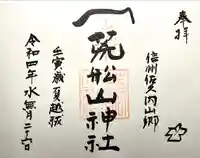 奉拝
信州佐久内山郷
荒船山神社
壬寅歳夏越祓
令和四年水無月